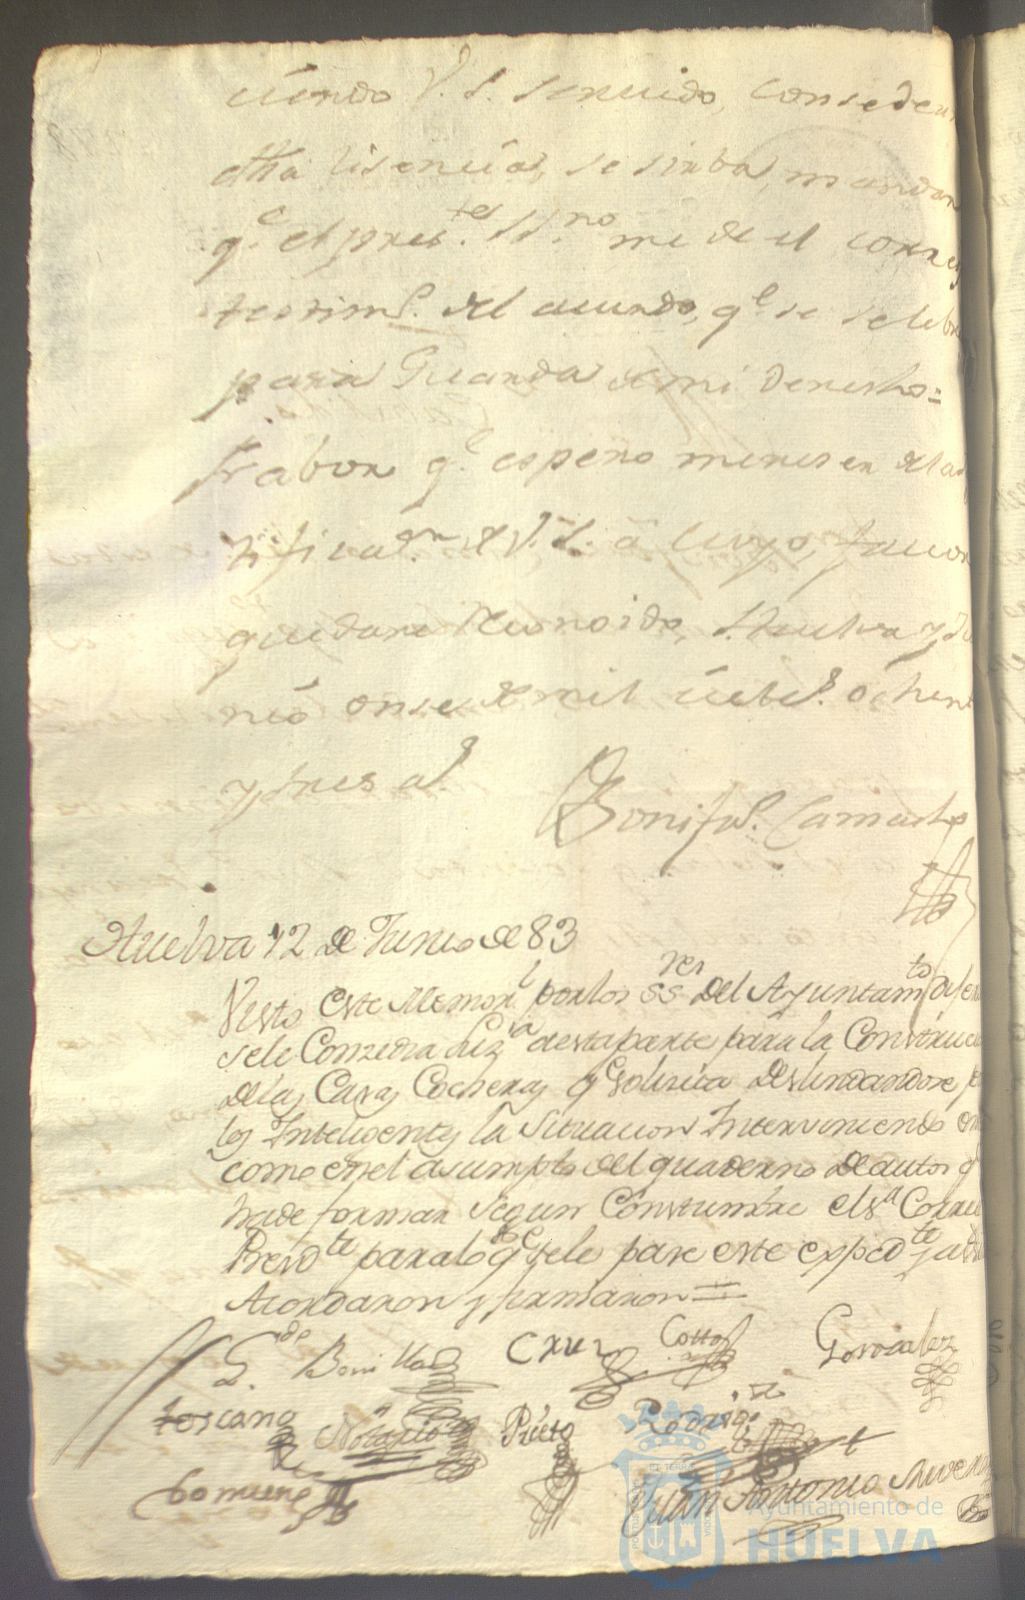 siendo V.S. servido, consede
dha lisencia, se sirba, mandar
q.e el pres.te SS.no me de el corr
testim.o del acuerdo, q.e se selebr
para Guarda de mi derecho =
frabor q.e espero mereser de la
V.S. a cuyo, favor
quedare reconosido, Huelva y Ju
nio onse de mil setes.s ochen
y tres a.s
Bonifa.o Camacho
Huelva 12 de Junio de 83
Visto este Memor.l por los SS.res del Ayuntam.to
se le Conzedia Liz.a a esta parte para la Construc
de las Casas Cocheras q.e solicita Deslindandose p
los Inteligentes la Situacion Interviniendo en
como en el asumpto del quaderno de autos q
ha de formar segun Constumbre el S.r Corre
Presid.te para lo q.e se le pase este exped.te y a
Acordaron y firmaron =
Bonilla Cruz Cotto Gonzalez
toscano Prieto
Juan Antonio
PORTUS MARIS ET TERRAE CUSTODIA
Ayuntamiento de
HUELVA